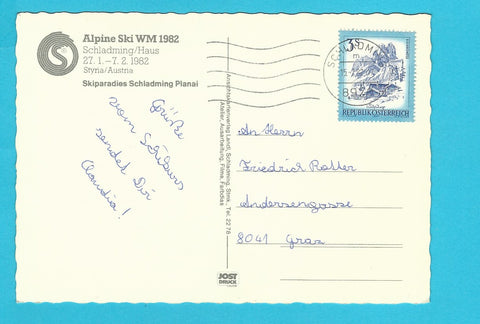 Alpine Ski WM 1982
Schladming/Haus
27. 1. - 7. 2. 1982
Styria/Austria
Skiparadies Schladming Planai
Grüße
vom Schikurs
sendet Dir
Claudia!
Ansichtskartenverlag Landl, Schladming, Stmk., Tel. 22 78
Atelier, Ausarbeitung, Filme, Farbdias
JOST
DRUCK
3S
REPUBLIK ÖSTERREICH
SCHLADMING
An Herrn
Friedrich Roller
Andersengasse
8041 Graz